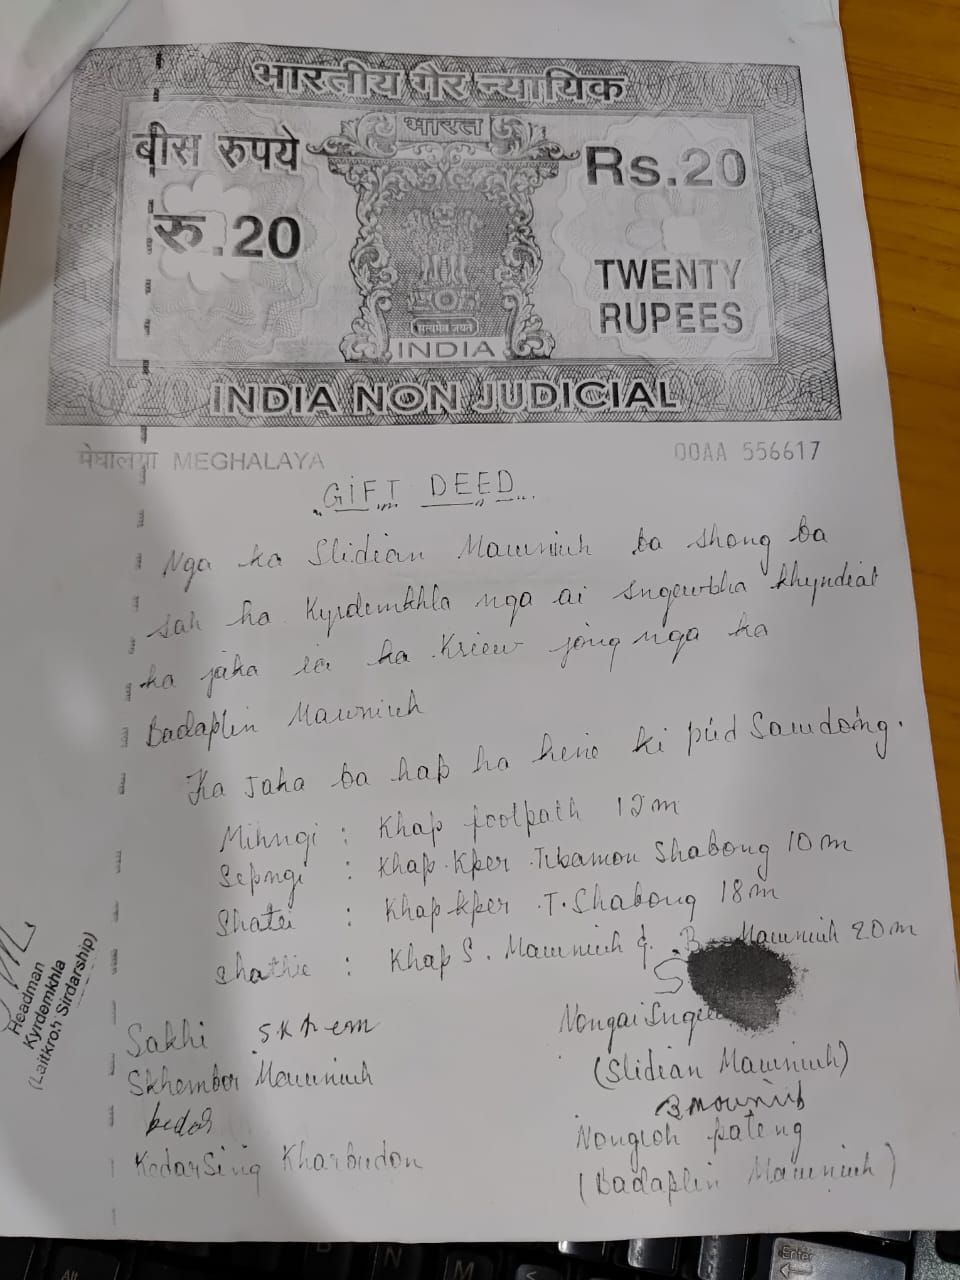 भारतीय गैर न्यायिक
भारत
बीस रुपये
Rs.20
रु.20
TWENTY
RUPEES
सत्यमेव जयते
INDIA
INDIA NON JUDICIAL
मेघालया MEGHALAYA
00AA 556617
GIFT DEED
Nga ka Slidian Mawniuh ba shong ba
sah ha Kyrdemkhla nga ai sngewbha khyndiat
ka jaka ia ka Ksiew jong nga ka
Badaplin Mawniuh
Ka Jaka ba hap ha kine ki pud Sawdong.
Mihngi : Khap footpath 12m
Sepngi : Khap Kper Shabong 10 m
Shatei : Khap kper T. Shabong 18m
Shathie : Khap S. Mawniuh & B. Mawniuh 20m
Headman
Kyrdemkhla
(Laitkroh Sirdarship)
Sakhi
Skhembor Mawniuh
kedar
KedarSing Kharbudon
(Slidian Mawniuh)
Nongioh pateng
(Badaplin Mawniuh)